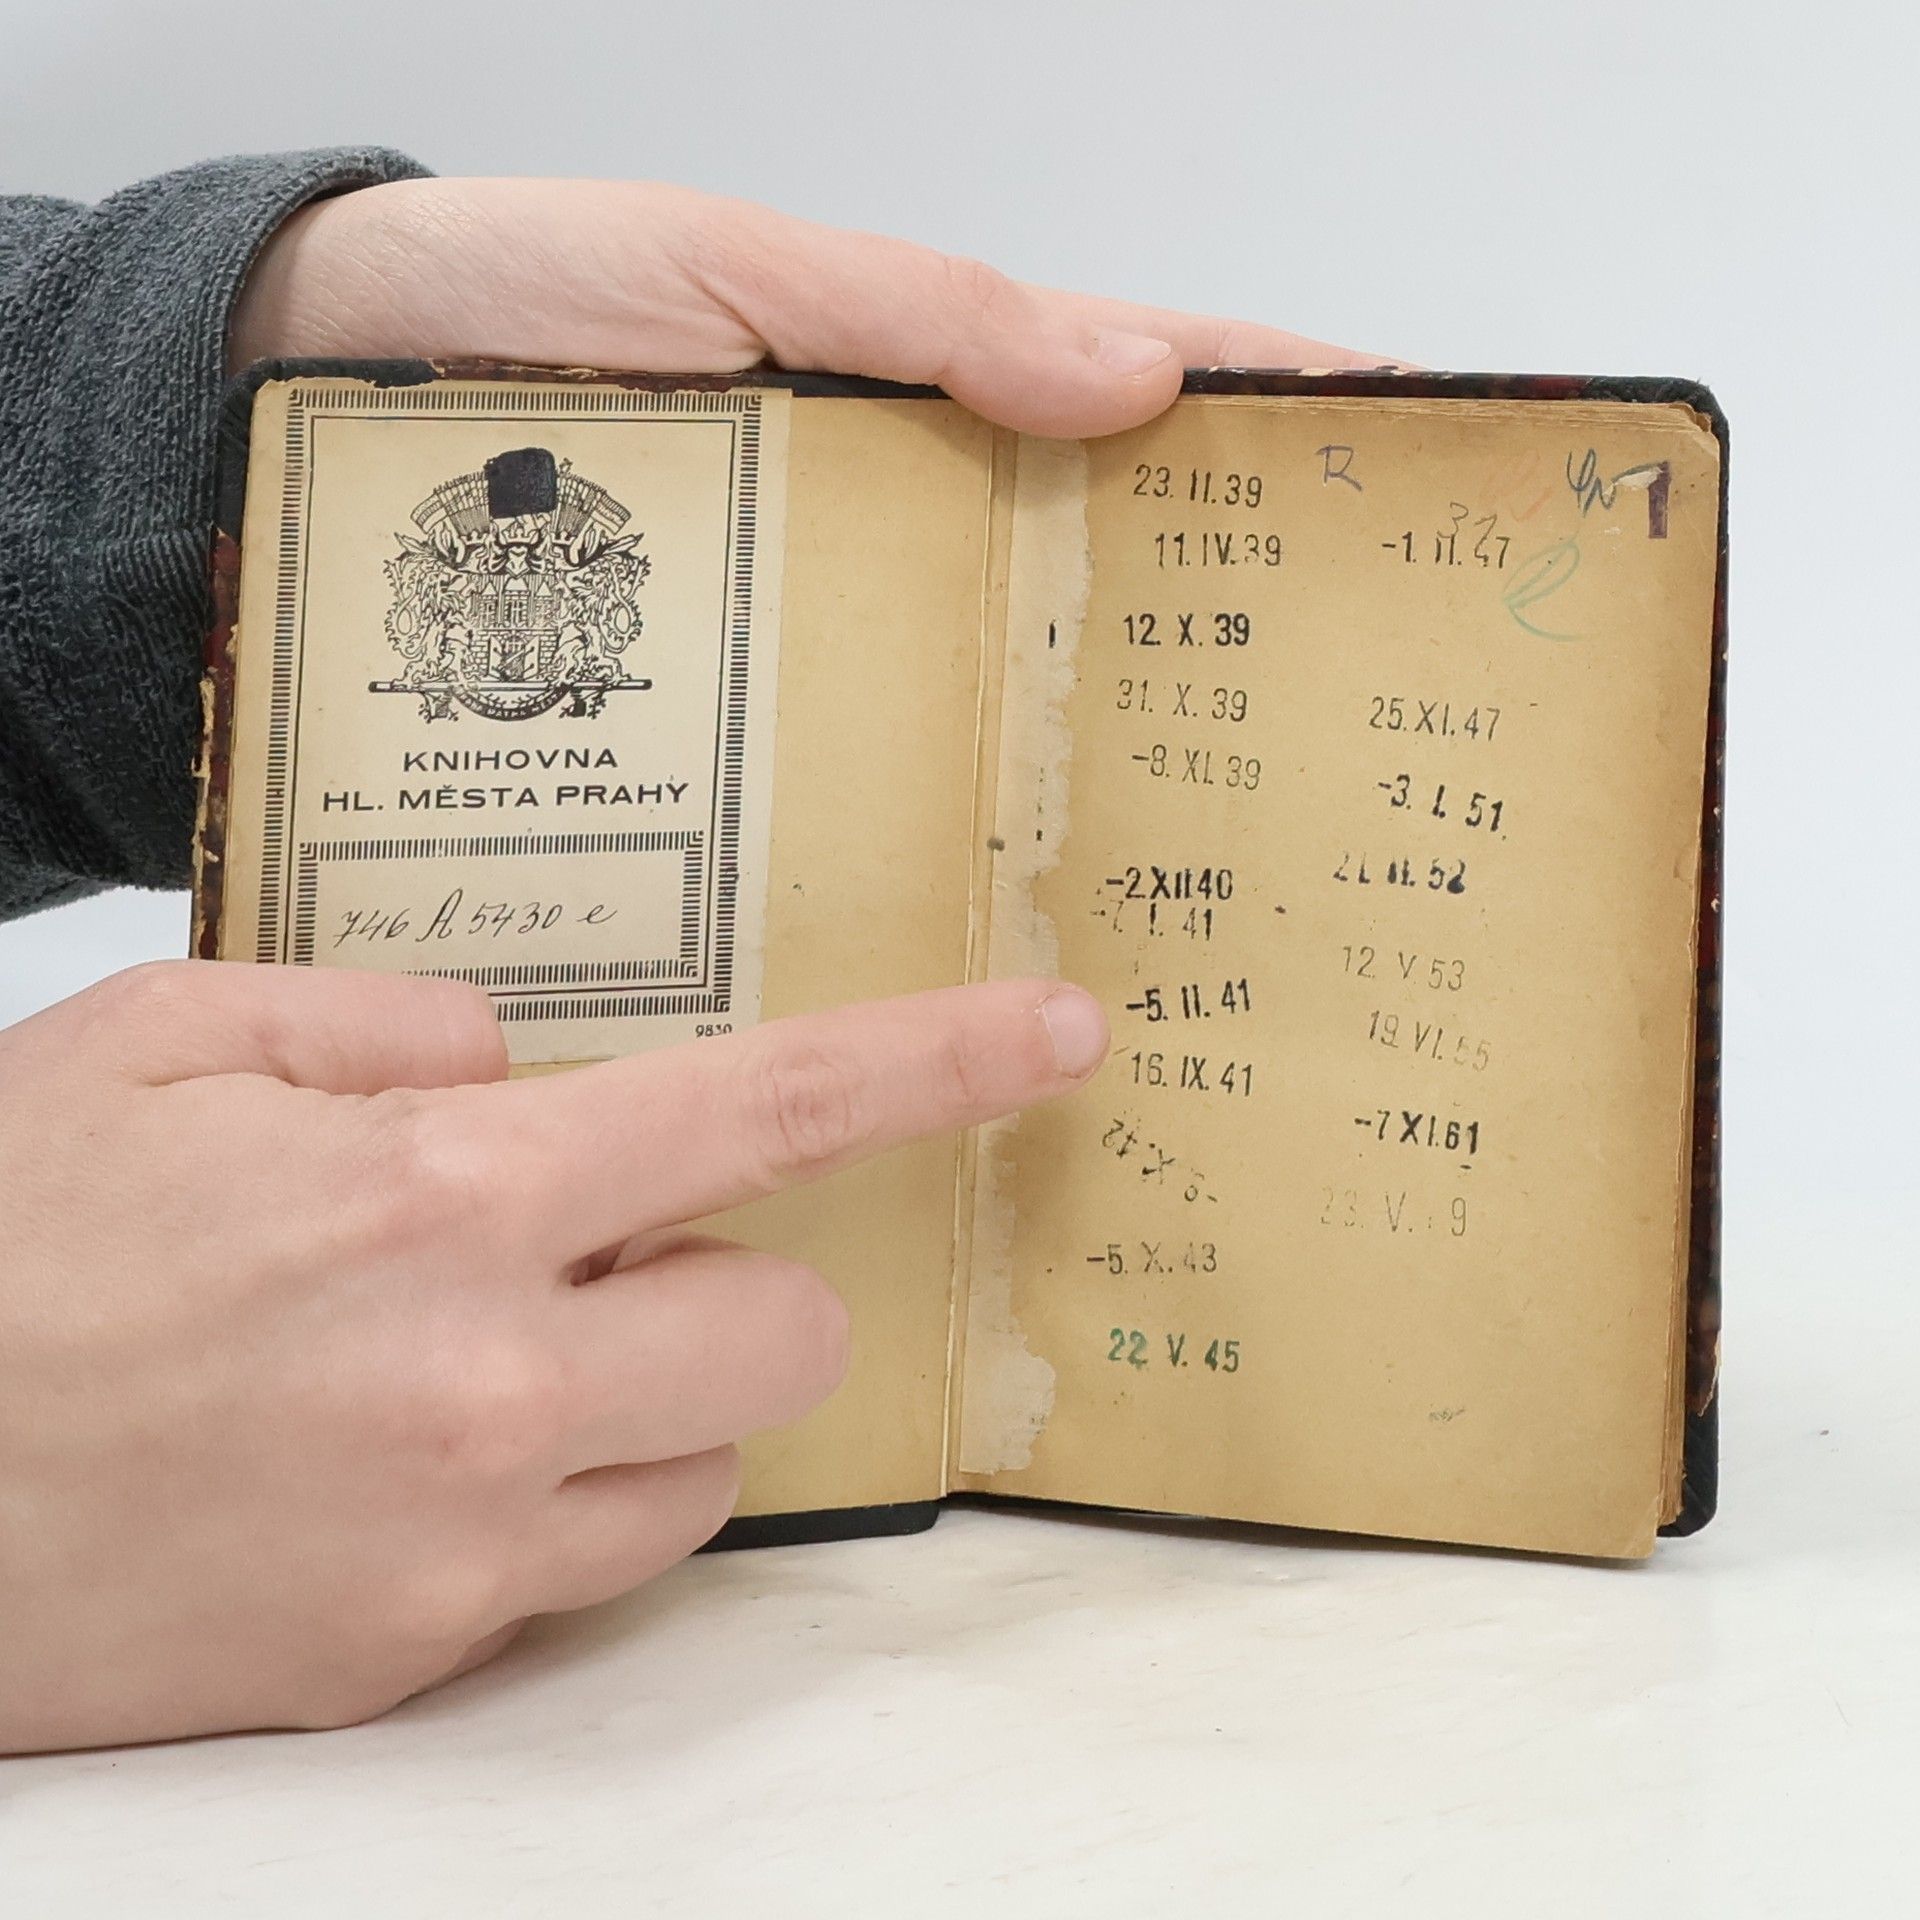 KNIHOVNA
HL. MĚSTA PRAHY
746 A 5430 e
9830
R
23. II. 39
11. IV. 39
12. X. 39
31. X. 39
-8. XI. 39
-2 XII 40
-7. I. 41
-5. II. 41
16. IX. 41
-9. X. 42
-5. X. 43
22 V. 45
37
-1. II. 47
25. XI. 47
-3. I. 51
II. 52
12 V 53
19 VI. 55
-7 XI. 61
23. V. 9